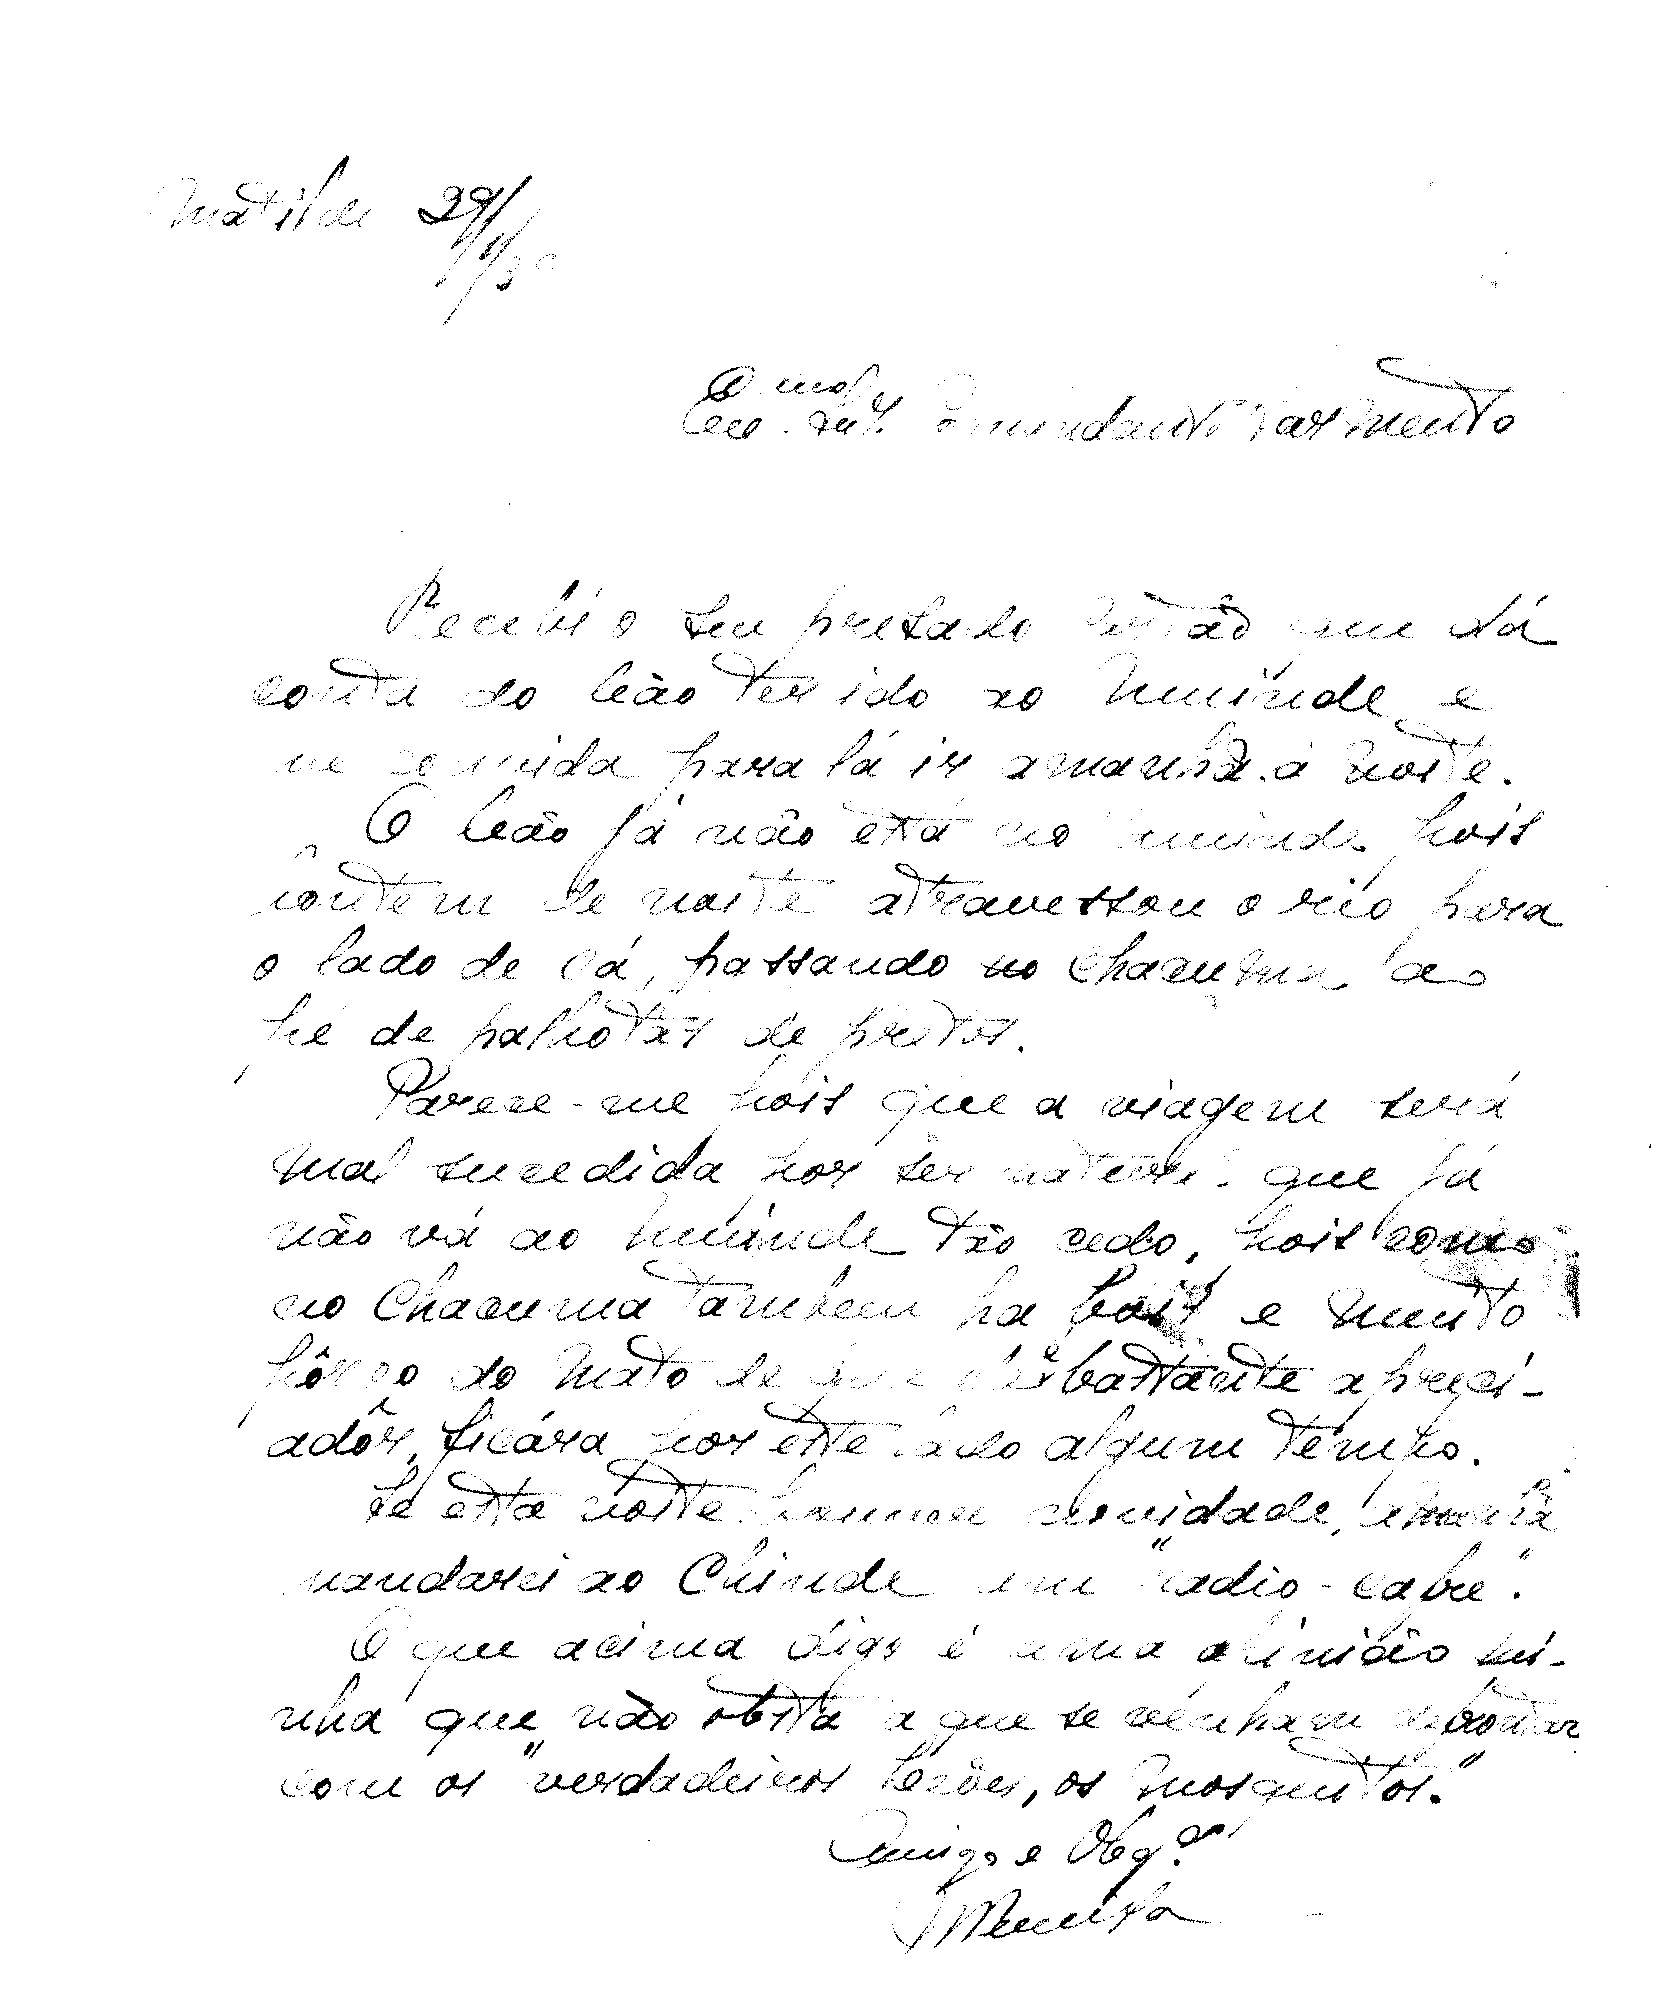 Matilde 29/
/1/30
Exmo. Snr. Comandante Sarmento
Recebi o seu presado cartão que dá
conta do leão ter ido ao Muinde e
me convida para lá ir amanhã á noite.
O leão já não está no Muinde pois
ôntem de noite atravessou o rio para
o lado de cá, passando no Chacuma ao
pé de palhotas de pretos.
Parece-me pois que a viagem será
mal sucedida por ser natural que já
não vá ao Muinde tão cedo, pois como
no Chacuma tambem ha bois e muito
pôrco do mato de que é bastante apreci-
adôr, ficára por este lado algum tempo.
Se esta noite houver novidade, amanhã
mandarei ao Chinde um "radio-cabre".
O que acima digo é uma opinião mi-
nha que não obsta a que se venham defrontar
com os "verdadeiros leões, os mosquitos."
Amigo e Obgo.